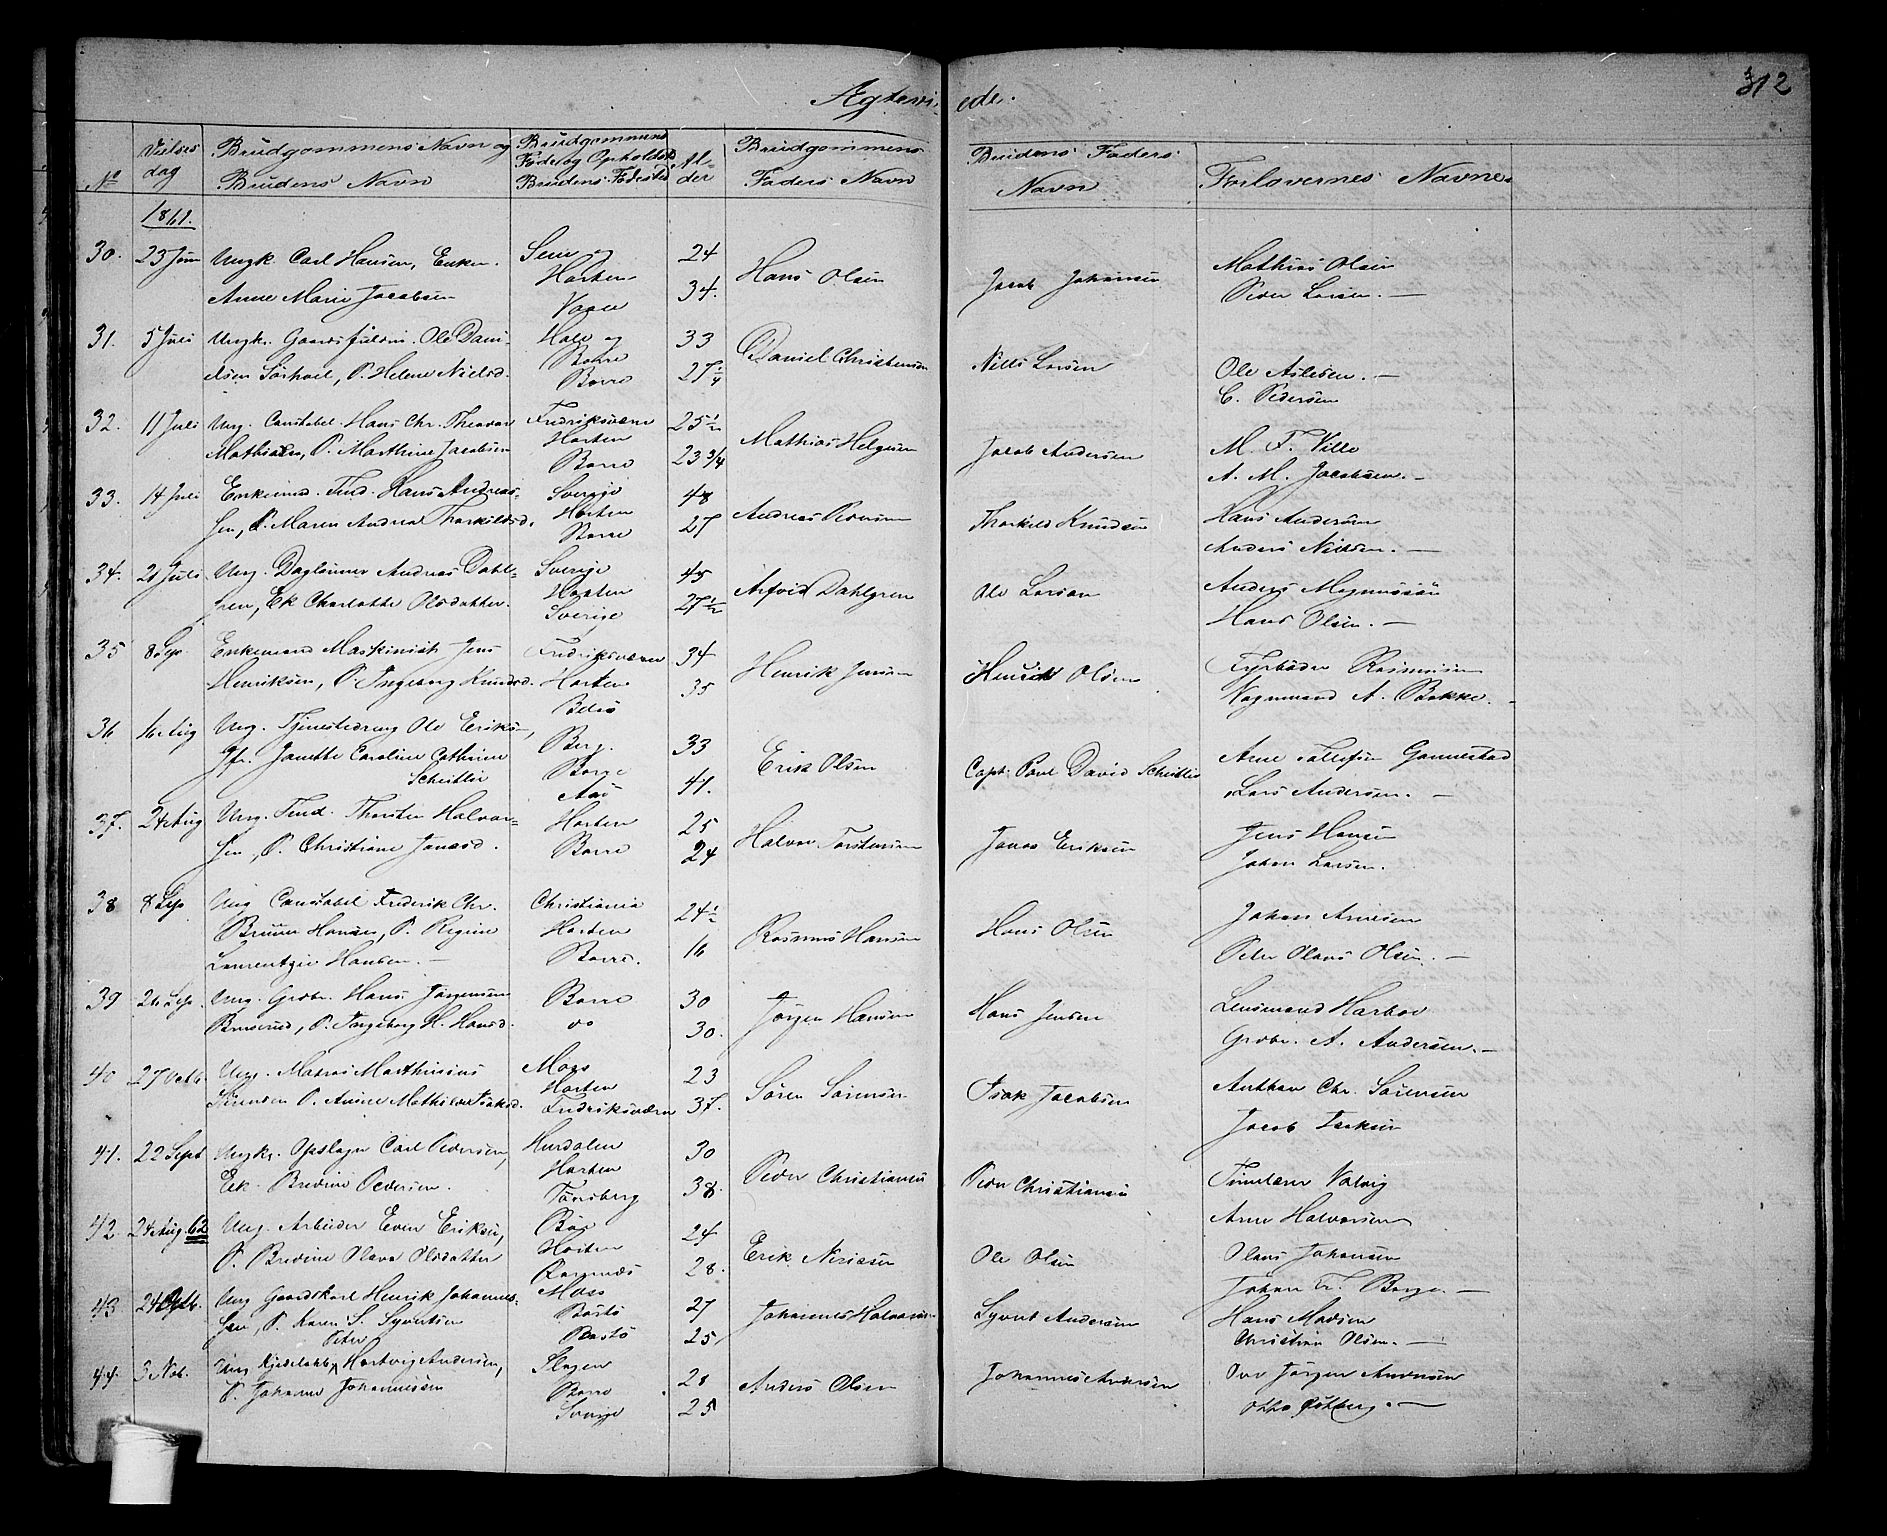 Ægteviede.
312
No
Vielses dag
Brudgommens Navn og Brudens Navn
Brudgommens Føde og Opholdsst. Brudens Fødested
Alder
Brudgommens Faders Navn
Brudens Faders Navn
Forlovernes Navne
1861.
30. 23 Juni Ungk. Carl Hansen, Enke Sem og 24 Hans Olsen Jacob Johansen Mathias Olsen
Anne Marie Jacobsen Horten 34. Peder Larsen. —
Vaale
31. 5 Juli Ungk. Ole Dani- og 33 Daniel Christensen Nills Larsen Ole Aslesen. —
elsen, P. Helene Nielsd. Borre 27 1/4 C. Pedersen
Borre
32. 11 Juli Ung. Constabel Hans Chr. Theodor Fredriksværn 25 1/2 Mathias Helgesen Jacob Andersen M. F. Ville
Mathisen, P. Marthine Jacobsen Horten 23 3/4 A. M. Jacobsen. —
Borre
33. 14 Juli Enkemd. Tmd. Hans Andreas- Sverige 48 Andreas Thorkild Knudsen Hans Andersen
sen, P. Maren Andrea Thorkildsd. Horten 27 Anders Nilsen. —
Borre
34. 21 Juli Ung. Daglønner Andreas Dahl- Sverige 45 Arfvid Dahlgren Ole Larson Anders Magnussøn
gren, Ek Charlotte Olsdatter. Horten 27 1/2 Hans Olsen. —
Sverige
35 8 Sep. Enkemand Maskinist Jens Fredriksværn 34 Henrik Jensen Henrick Olsen Fyrbøder Rasmussen
Henriksen, P. Ingeborg Knudsd. Horten 35 Vognmand A. Bakke. —
36 16 Aug Ung. Tjenestedreng Ole Eriksen, Berg. 33 Erik Olsen Capt. Povl David Arne Gannestad
Jfr. Janette Caroline Cathrine Borge 41. Lars Andersen. —
Aas
37. 24 Aug Ung. Tmd. Thorsten Halvor- Horten 25 Halvor Torstensen Jonas Eriksen Jens Hansen
sen, P. Christiane Jonasd. Borre 24 Johan Larsen.
38 8 Sep Ung Constabel Frederik Chr. Christiania 24 1/2 Rasmus Hansen Hans Olsen Johan Arnesen
Bruun Hansen, P. Regine Horten 16 Peter Olaus Olsen. —
Laurentzie Hansen. — Borre.
39 26 Sep. Ung. Grdbr. Hans Jørgensen Borre 30 Jørgen Hansen Hans Jensen Lensmand Harboe
P. Ingeborg H. Hansd. do 30. Grdbr. A. Andersen. —
40 27 Octb. Ung. Matros Marthinius Moss 23 Søren Sørensen Isak Jacobsen Anthon Chr. Sørensen
Sørensen P. Anne Mathilde Isaksd. Horten 37. Jacob Isaksen
Fredriksværn
41. 22 Sept Ungk. Opslagn Carl Pedersen, Hurdalen 30 Peder Christiansen Peder Christiansen Tømmerm Valvig
Ek. Bredine Pedersen. Horten 38. Arne Halvorsen
Tønsberg
42. 24 Aug. 62 Ung. Arbeider Even Eriksen, Bøe 24 Erik Ole Olsen Olaus Johansen
P. Bredine Olava Olsdatter Horten 28. Johan F. Borge. —
Ramnæs
43 24 Octb. Ung Gaardskarl Henrik Johannes- Moss 27 Johannes Halvorsen Syvert Andersen Hans Madsen
sen, P. Karen S. Syvertsen Bastø 25, Christian Olsen. —
Bastø
Peter
44. 3 Nob. Ung Kjedelakb. Hartvig Andersen, Slagen 28 Anders Olsen Johannes Andersen Jørgen Andersen
P. Johanne Johannessen Borre 25 Otto —
Sverige